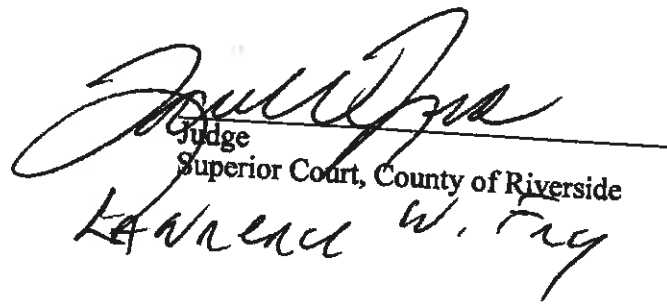 Judge
Superior Court, County of Riverside
Lawrence W. Fry